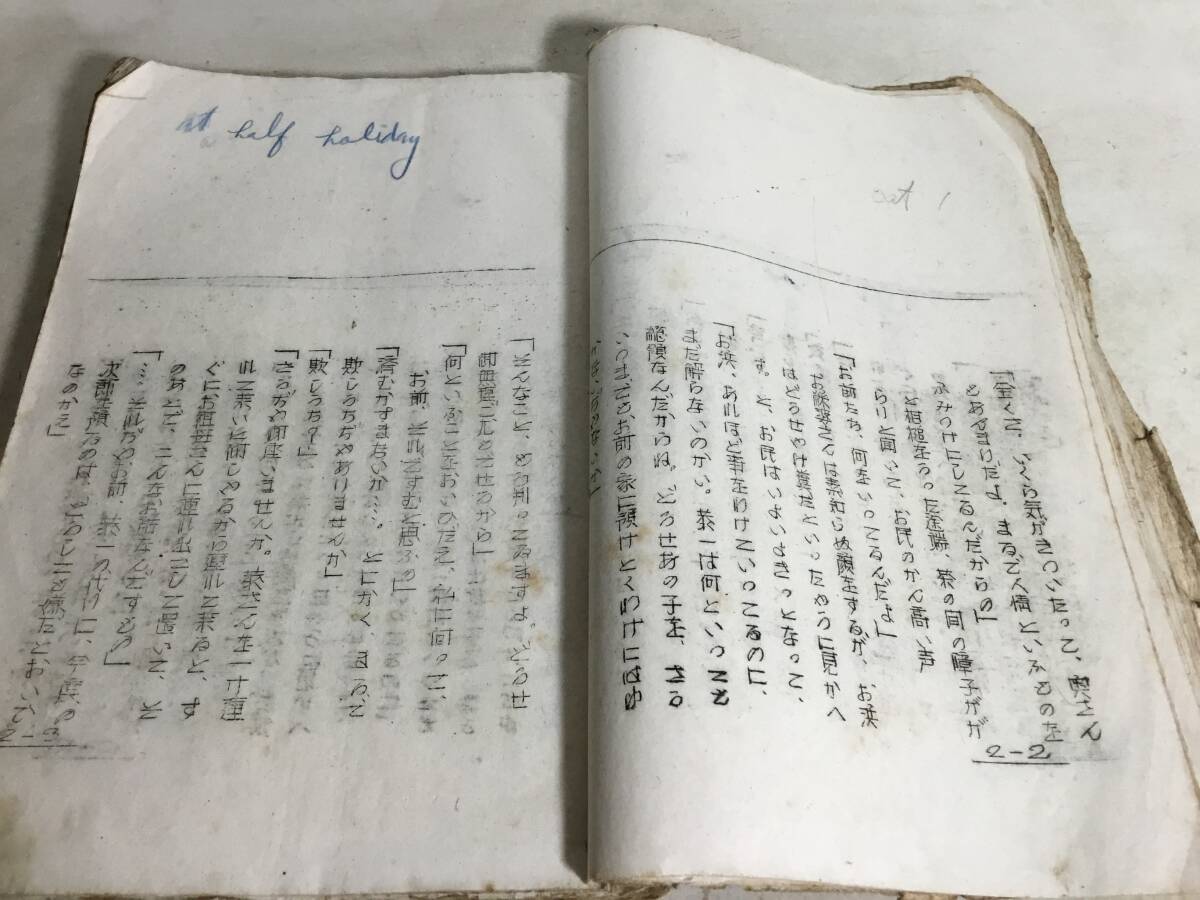 at half holiday
act 1
「全くさ、いくら気がきついたって、奥さん
もあんまりだよ。まるで人情といふものを
ふみつけにしてるんだからの」
と相槌をうった途端、茶の間の障子がが
らりと開いて、お民のかん高い声
「お前たち、何をいってるんだよ」
お婆さんは素知らぬ顔をするが、お浜
はどうせやけ糞だといったやうに見かへ
す。と、お民はいよいよきっとなって、
「お浜、あれほど事をわけていってるのに、
まだ解らないのかい。恭一は何といっても
総領なんだからね。どうせあの子を、さう
いつまでも、お前の家に預けとくわけにはゆ
かないぢゃないか」
2-2
「そんなこと、もう判ってゐますよ。どうせ
御無理ごもっともでせうから」
「何といふことをおいひだえ、私に向って、
お前、それですむと思ふの」
「済むかすまないか…。とにかく、まるで
欺しうちぢゃありませんか」
「欺しうち?」
「さうぢゃ御座いませんか。恭さんを一寸連
れて来いと仰しゃるから連れて来ると、す
ぐにお祖母さんに連れ出して置いて、そ
のあとで、こんなお話なんですもの」
「…それぢゃお前、恭一の代りに、今度の
次郎を預るのは、どうしても嫌だとおいひ
なのかえ」